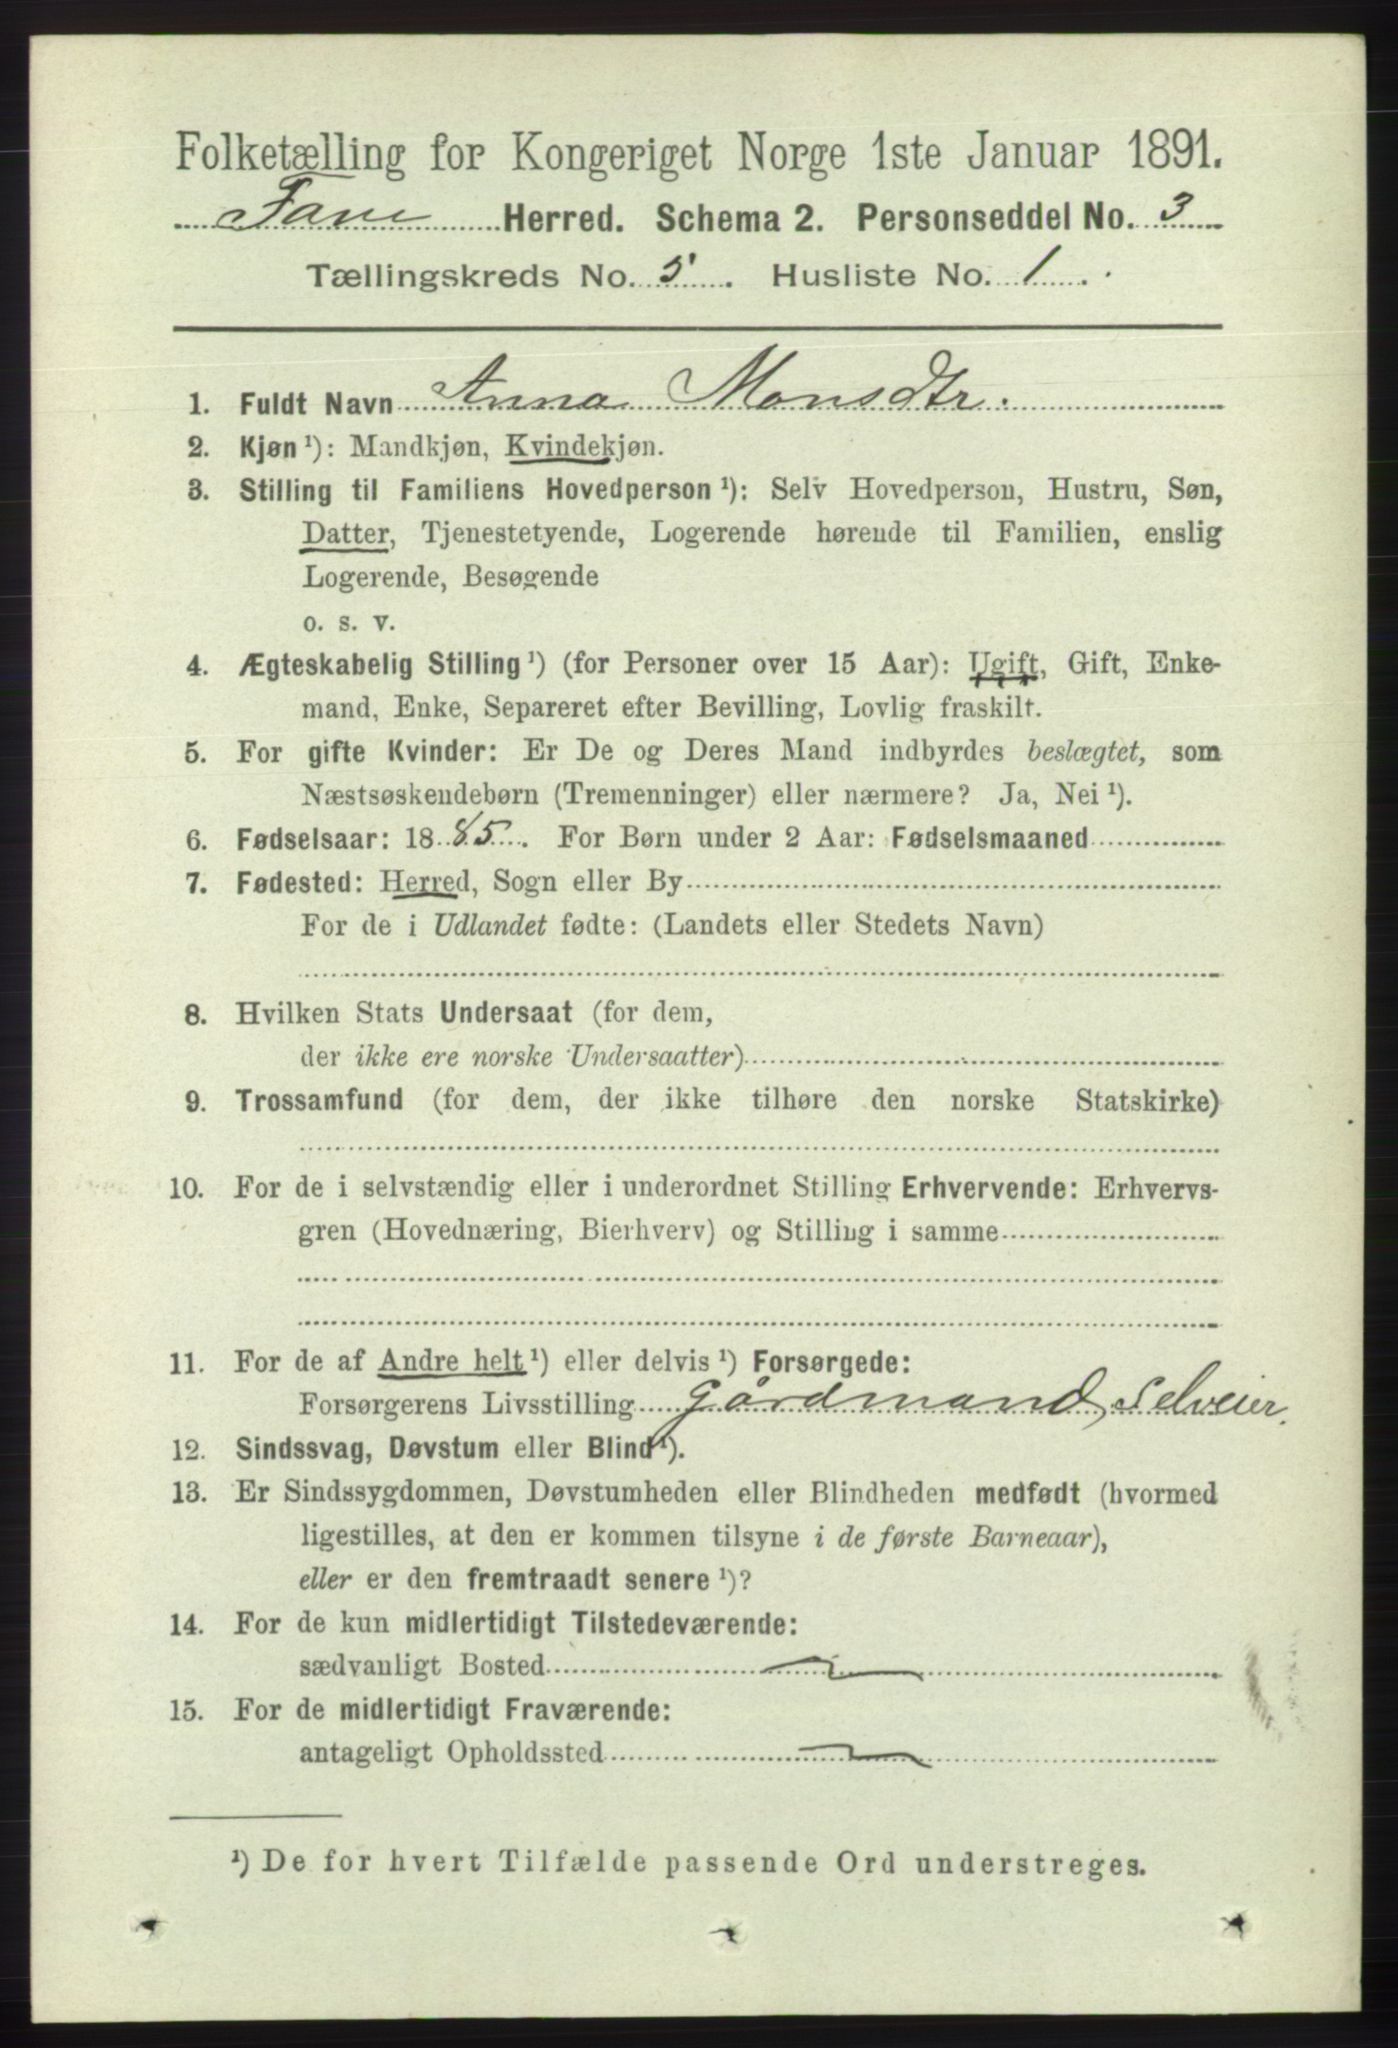 Folketælling for Kongeriget Norge 1ste Januar 1891.
Fane Herred. Schema 2. Personseddel No. 3
Tællingskreds No. 5. Husliste No. 1.
1. Fuldt Navn Anna Monsdtr.
2. Kjøn ¹): Mandkjøn, Kvindekjøn.
3. Stilling til Familiens Hovedperson ¹): Selv Hovedperson, Hustru, Søn,
Datter, Tjenestetyende, Logerende hørende til Familien, enslig
Logerende, Besøgende
o. s. v.
4. Ægteskabelig Stilling ¹) (for Personer over 15 Aar): Ugift, Gift, Enke-
mand, Enke, Separeret efter Bevilling, Lovlig fraskilt.
5. For gifte Kvinder: Er De og Deres Mand indbyrdes beslægtet, som
Næstsøskendebørn (Tremenninger) eller nærmere? Ja, Nei ¹).
6. Fødselsaar: 1885. For Børn under 2 Aar: Fødselsmaaned
7. Fødested: Herred, Sogn eller By
For de i Udlandet fødte: (Landets eller Stedets Navn)
8. Hvilken Stats Undersaat (for dem,
der ikke ere norske Undersaatter)
9. Trossamfund (for dem, der ikke tilhøre den norske Statskirke)
10. For de i selvstændig eller i underordnet Stilling Erhvervende: Erhvervs-
gren (Hovednæring, Bierhverv) og Stilling i samme
11. For de af Andre helt ¹) eller delvis ¹) Forsørgede:
Forsørgerens Livsstilling Gårdmand, Selveier.
12. Sindssvag, Døvstum eller Blind ¹).
13. Er Sindssygdommen, Døvstumheden eller Blindheden medfødt (hvormed
ligestilles, at den er kommen tilsyne i de første Barneaar),
eller er den fremtraadt senere ¹)?
14. For de kun midlertidigt Tilstedeværende:
sædvanligt Bosted
15. For de midlertidigt Fraværende:
antageligt Opholdssted
¹) De for hvert Tilfælde passende Ord understreges.